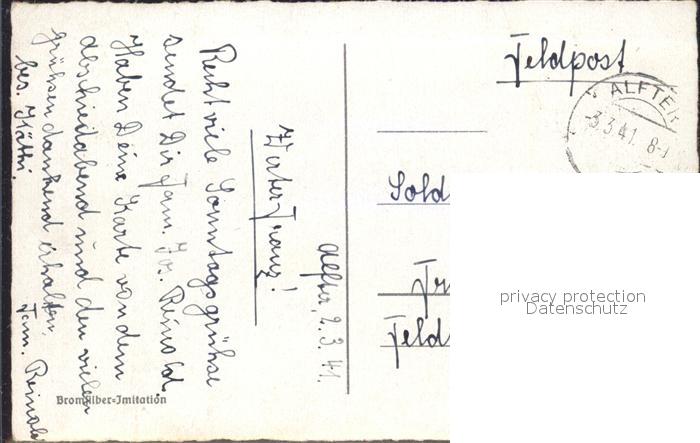 Alfter, 2.3.41.
Vetter Franz!
Recht viele Sonntagsgrüsse
sendet Dir Fam. Jos. Reinold
Haben Deine Karte von dem
Abschiedabend und den vielen
grüssen dankend erhalten,
bes. Käthi. Fam. Reinold
Feldpost
ALFTER
-3.3.41. 8-
Sold
Fr
Feld
privacy protection
Datenschutz
Bromsilber-Imitation